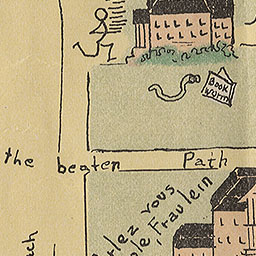 BOOK
WORM
the beaten Path
Parlez vous
Fraulein